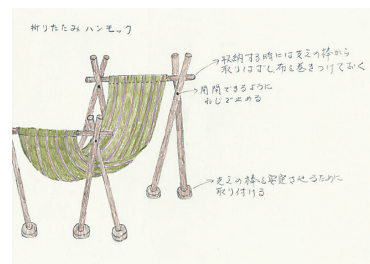 折りたたみハンモック
収納する時には支えの棒から
取りはずし布を巻きつけておく
開閉できるように
ねじで止める
支えの棒を安定させるために
取り付ける